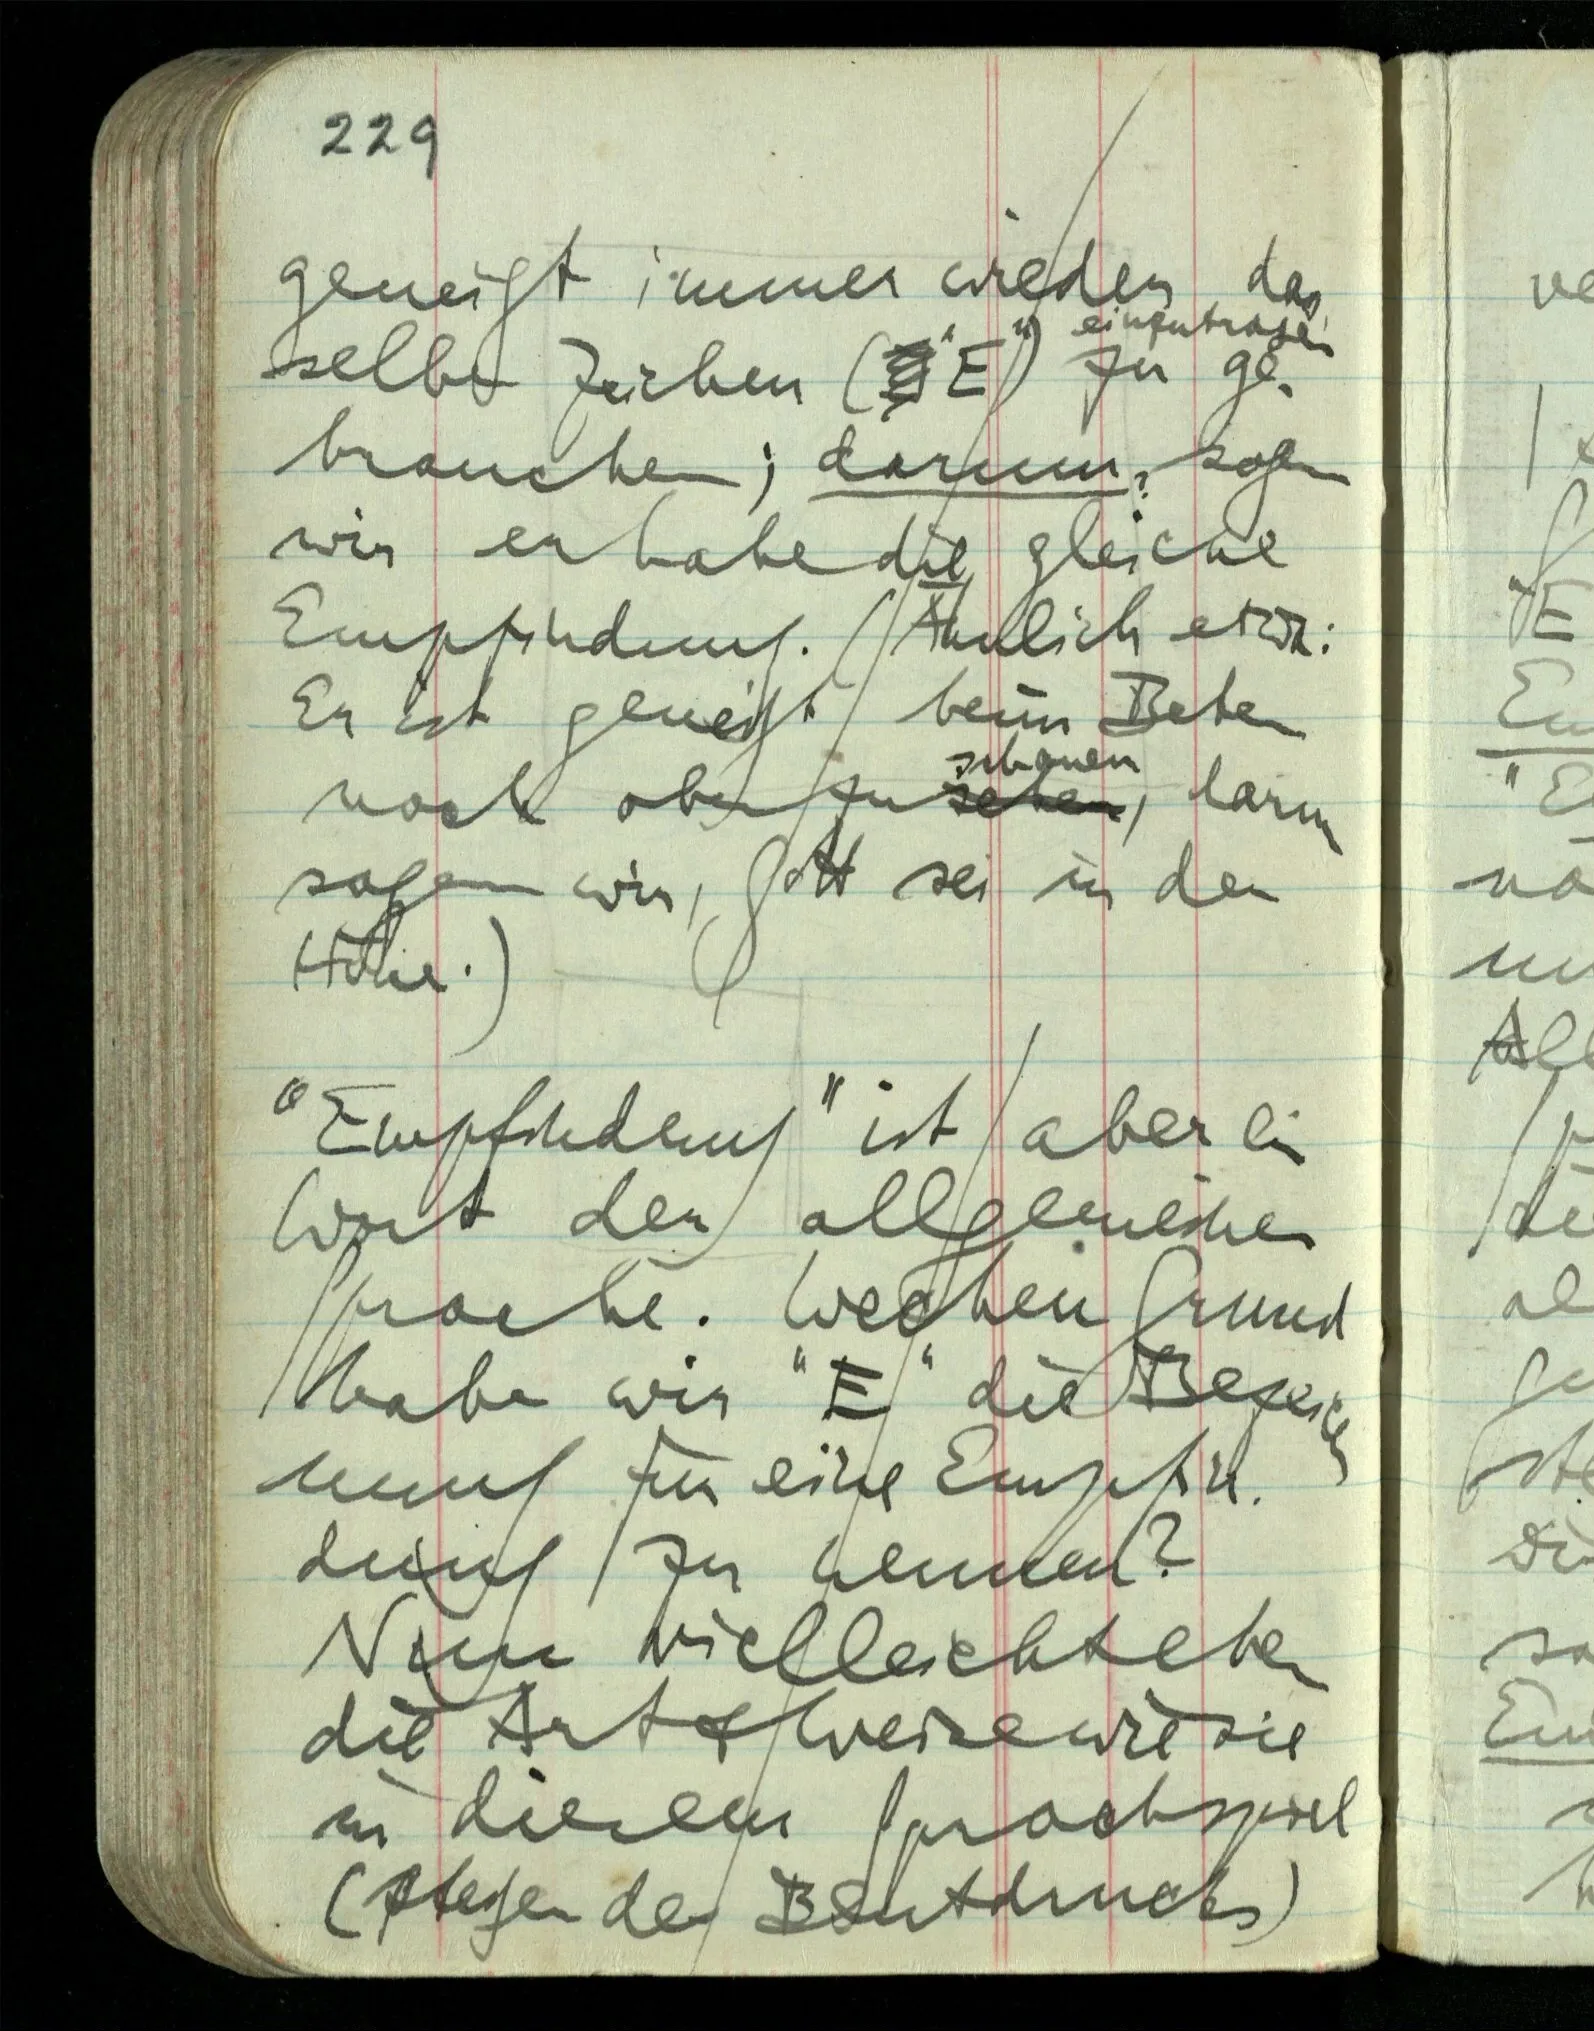 229
geneigt immer wieder das
einzutragen
selbe Zeichen ("E") zu ge-
brauchen; darum, sagen
wir er habe die gleiche
Empfindung. (Ähnlich etwa:
Er ist geneigt beim Beten
schauen
nach oben zu sehen, darum
sagen wir, Gott sei in der
Höhe.)
"Empfindung" ist aber ein
Wort der allgemeinen
Sprache. Welchen Grund
haben wir "E" die Bezeich
nung für eine Empfin-
dung zu nennen?
Nun vielleicht eben
die Art & Weise wie sie
in diesem Sprachspiel
(Steigen des Blutdrucks)